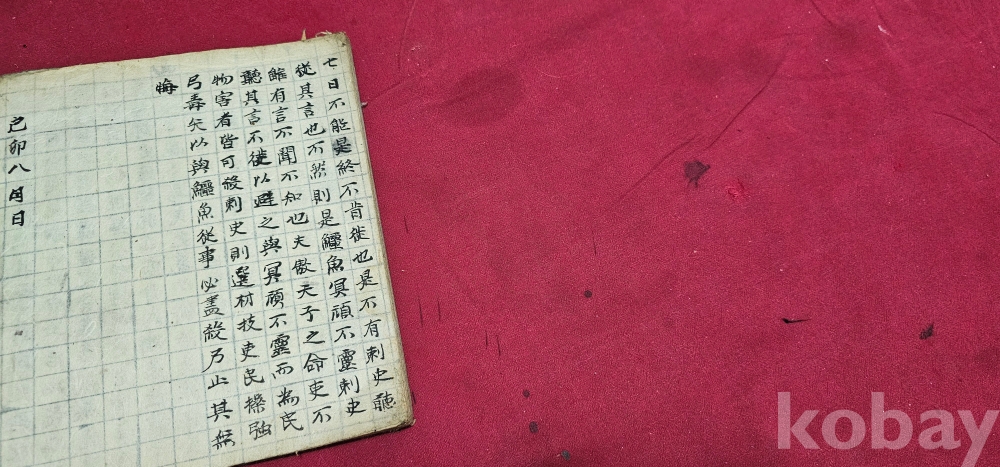 七日不能是終不肯徙也是不有刺史聽
從其言也不然則是鱷魚冥頑不靈刺史
雖有言不聞不知也夫傲天子之命吏不
聽其言不徙以避之與冥頑不靈而為民
物害者皆可殺刺史則選材技吏民操強
弓毒矢以與鱷魚從事必盡殺乃止其無
晦
己卯八月日
kobay